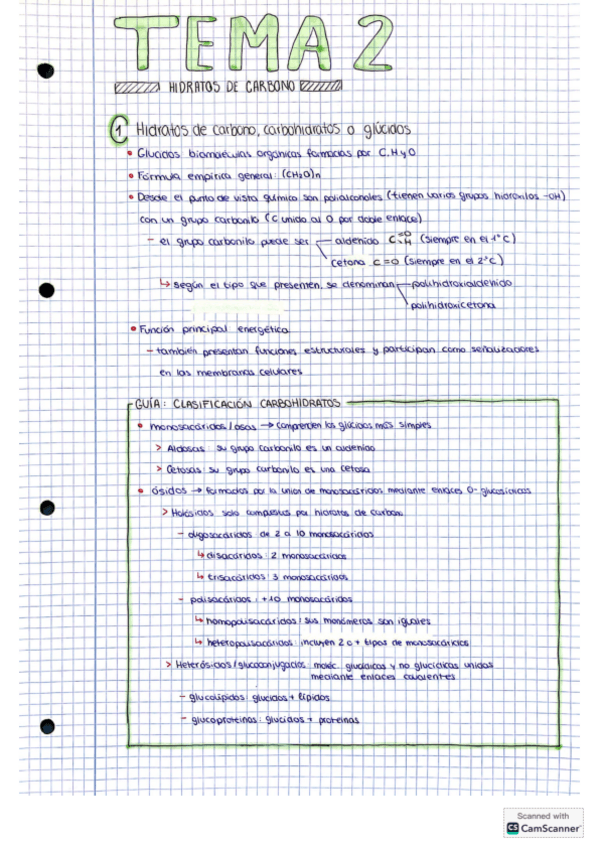 TEMA 2
HIDRATOS DE CARBONO
1 Hidratos de carbono, carbohidratos o glúcidos
• Glúcidos: biomoléculas orgánicas formadas por C, H y O
• Fórmula empírica general: (CH2O)n
• Desde el punto de vista químico son polialcoholes (tienen varios grupos hidroxilos -OH)
con un grupo carbonilo (C unido al O por doble enlace)
- el grupo carbonilo puede ser aldehído C=O H (siempre en el 1ºC)
cetona C=O (siempre en el 2ºC)
↳ según el tipo que presenten, se denominan polihidroxialdehído
polihidroxicetona
• Función principal energética
- también presentan funciones estructurales y participan como señalizadores
en las membranas celulares
GUÍA: CLASIFICACIÓN CARBOHIDRATOS
• monosacáridos/osas → comprenden los glúcidos más simples
> Aldosas: su grupo carbonilo es un aldehído
> Cetosas: su grupo carbonilo es una cetosa
• ósidos → formados por la unión de monosacáridos mediante enlaces O-glucosídicos
> Holósidos: solo compuestos por hidratos de carbono
- oligosacáridos: de 2 a 10 monosacáridos
↳ disacáridos: 2 monosacáridos
↳ trisacáridos: 3 monosacáridos
- polisacáridos: +10 monosacáridos
↳ homopolisacáridos: sus monómeros son iguales
↳ heteropolisacáridos: incluyen 2 o + tipos de monosacáridos
> Heterósidos/glucoconjugados: moléc. glucídicas y no glucídicas unidas
mediante enlaces covalentes
- glucolípidos: glúcidos + lípidos
- glucoproteínas: glúcidos + proteínas
Scanned with
CS CamScanner